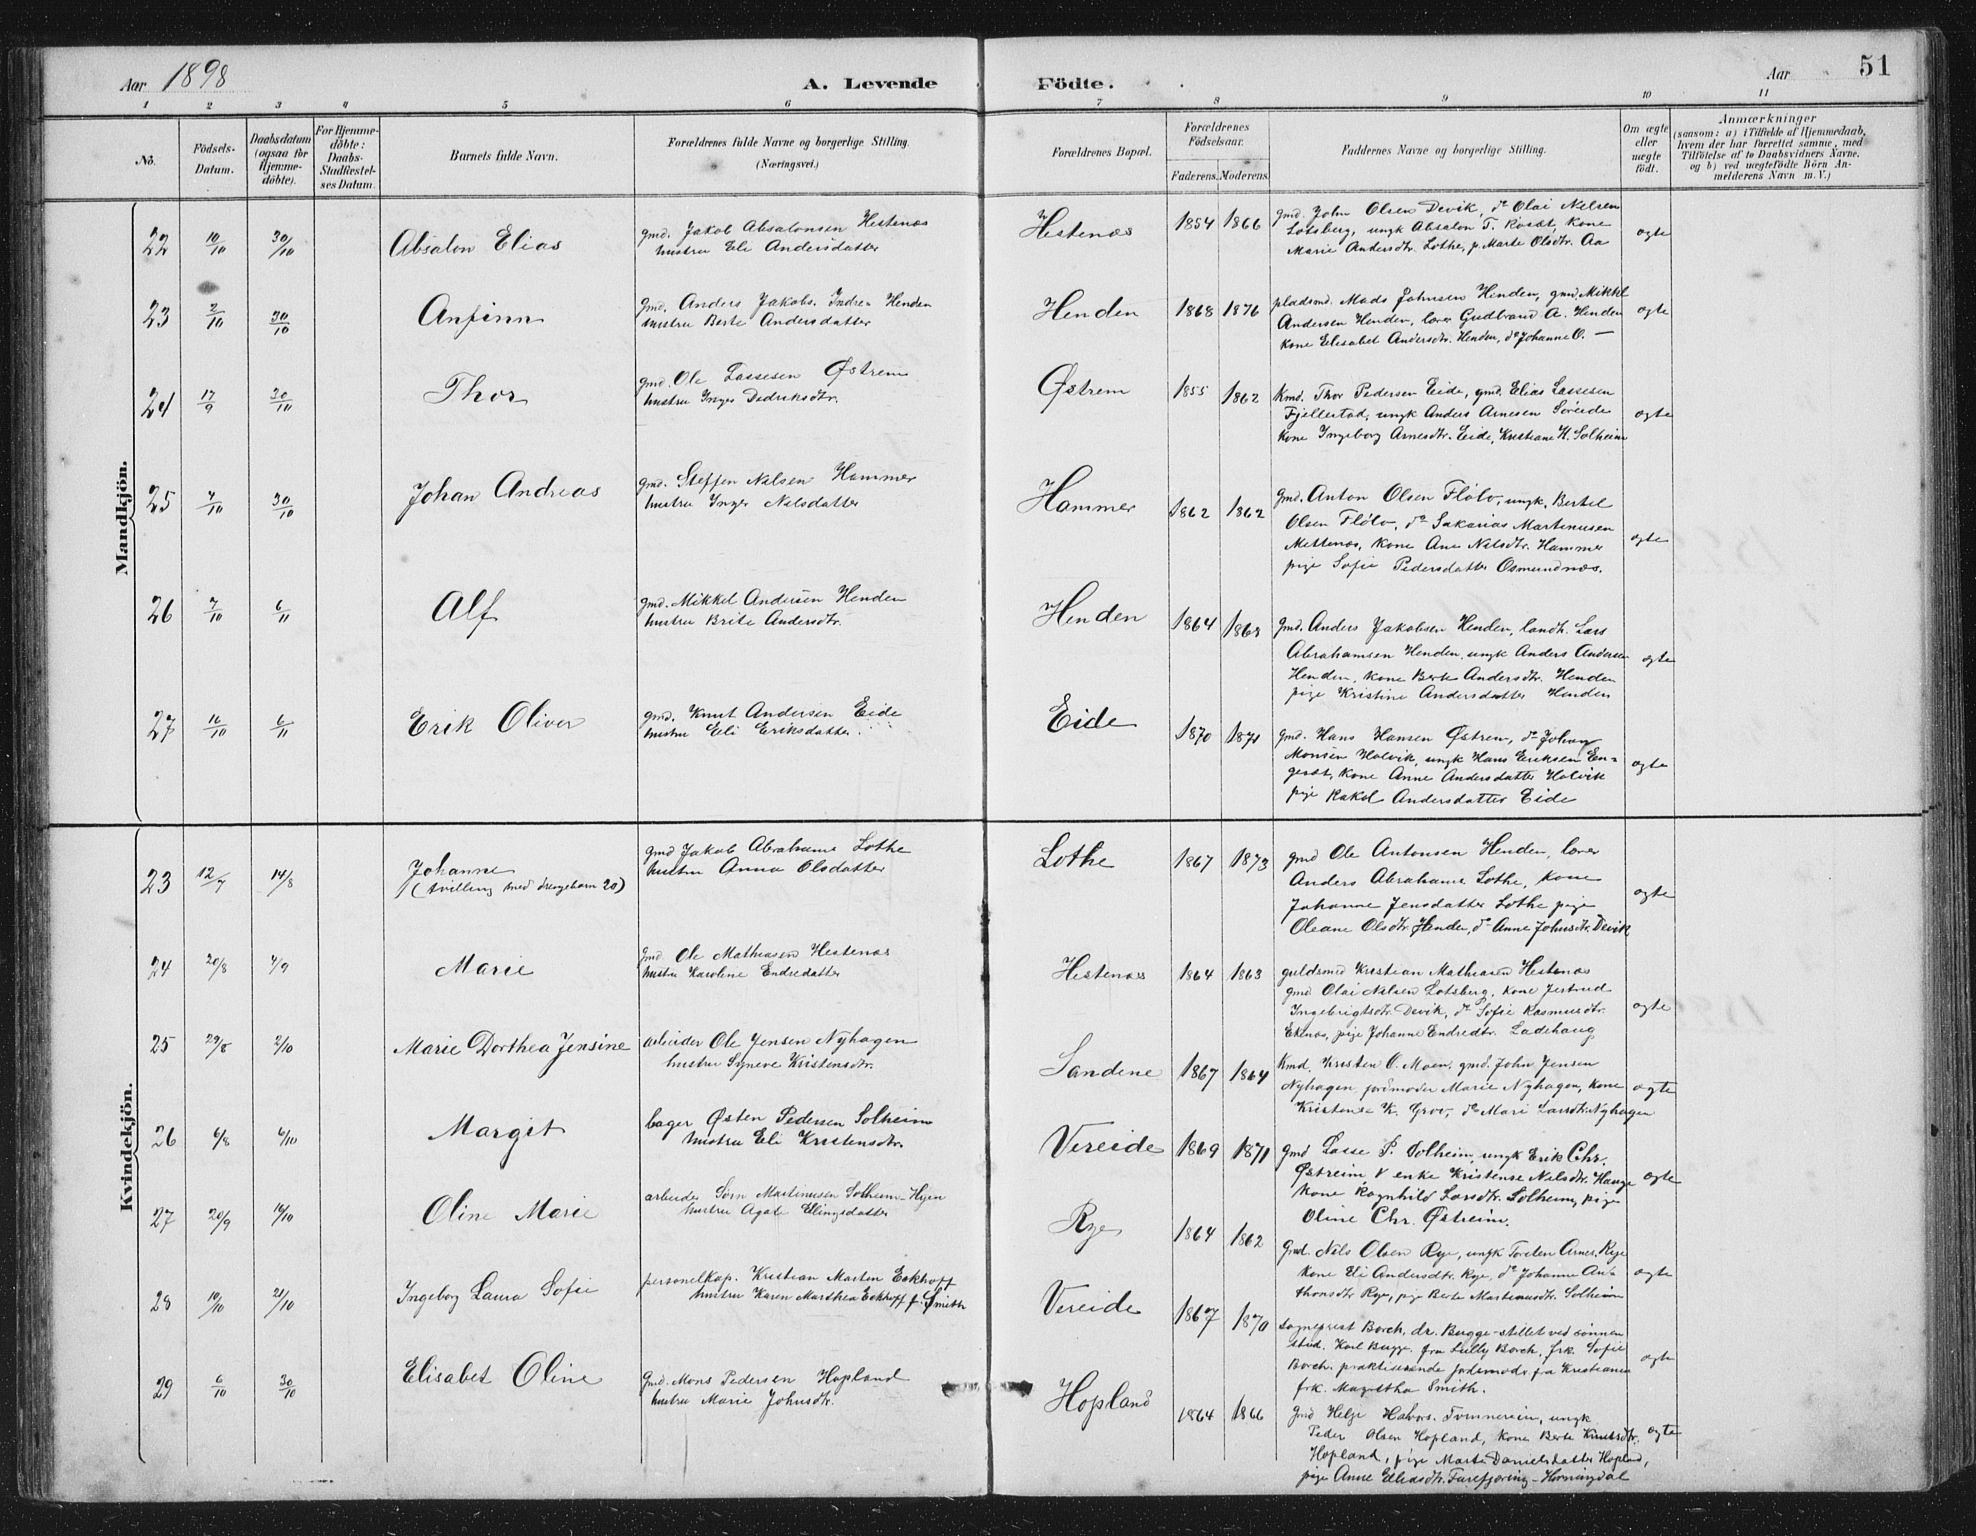 Aar 1898
A. Levende Födte.
Aar
51
1 2 3 4 5 6 7 8 9 10 11
No.
Födsels-Datum.
Daabsdatum (ogsaa för Hjemme-döbte).
For Hjemme-döbte: Daabs-Stadfæstel-ses Datum.
Barnets fulde Navn.
Forældrenes fulde Navne og borgerlige Stilling. (Næringsvei.)
Forældrenes Bopæl.
Forældrenes Födselsaar.
Faderens. Moderens.
Faddernes Navne og borgerlige Stilling.
Om ægte eller uægte födt.
Anmærkninger (saasom: a) i Tilfælde af Hjemmedaab, hvem der har forrettet samme, med Tilföielse af to Daabsvidners Navne, og b) ved uægtefödte Börn An-melderens Navn m. V.)
Mandkjön.
22 10/10 30/10 Absalon Elias
gmd. Jakob Absalonsen Hestenæs
hustru Eli Andersdatter
Hestenæs 1854 1866
gmd. John Olsen Devik, do Olai Nelsen
Lotsberg, ungk Absalon T. Rosæt, kone
Marie Andersdtr. Lothe, p. Marte Olsdtr. Aa
ægte
23 2/10 30/10 Anfinn
gmd. Anders Jakobs. Indre Henden
hustru Berte Andersdatter
Henden 1868 1876
pladsmd. Mads Johnsen Henden, gmd. Mikkel
Andersen Henden, lærer Gudbrand A. Henden
kone Elisabet Andersdtr. Henden, do Johanne O. —
ægte
24 17/9 30/10 Thor
gmd. Ole Lassesen Østrem
hustru Inger Didriksdtr.
Østrem 1855 1862
Kmd. Thor Pedersen Eide, gmd. Elias Lassesen
Fjellestad, ungk Anders Arnesen Søreide
kone Ingeborg Arnesdtr. Eide, Kristiane H. Solheim
ægte
25 7/10 30/10 Johan Andreas
gmd. Steffen Nilsen Hammer
hustru Inger Nilsdatter
Hammer 1862 1862
gmd. Anton Olsen Flølo, ungk. Bertel
Olsen Flølo, do Sakarias Martinusen
Mettenæs, kone Ane Nilsdtr. Hammer
pige Sofie Pedersdatter Osmundnæs.
ægte
26 7/10 6/11 Alf
gmd. Mikkel Andersen Henden
hustru Brite Andersdtr.
Henden 1864
gmd. Anders Jakobsen Henden, landh. Lars
Abrahamsen Henden, ungk Anders Andersen
Henden, kone Berte Andersdtr. Henden
pige Kristine Andersdatter Henden
ægte
27 16/10 6/11 Erik Oliver
gmd. Knut Andersen Eide
hustru Eli Eriksdatter
Eide 1870 1871
gmd. Hans Hansen Østrem, do Johan
Monsen Holvik, ungk Hans Eriksen En=
gesæt, kone Anne Andersdatter Holvik
pige Rakel Andersdatter Eide
ægte
Kvindekjön.
23 12/7 14/8 Johanne
(tvilling med drengebarn 20)
gmd Jakob Abrahams Lothe
hustru Anna Olsdatter
Lothe 1867 1873
gmd Ole Antonsen Henden, lærer
Anders Abrahams Lothe, kone
Johanne Jensdatter Lothe pige
Oleane Olsdtr. Henden, do Anne Johnsdtr. Devik
ægte
24 20/8 4/9 Marie
gmd Ole Mathiasen Hestenæs
hustru Karoline Endredatter
Hestenæs 1864 1863
guldsmed Kristian Mathiasen Hestenæs
gmd Olai Nelsen Lotsberg, kone Jertrud
Ingebrigtsdtr. Devik, do Sofie Rasmusdtr.
Ektnæs, pige Johanne Endredtr. Ladehaug
ægte
25 29/8 2/10 Marie Dorthea Jensine
arbeider Ole Jensen Nyhagen
hustru Synneve Kristensdtr.
Sandene 1867 1864
Kmd. Kristen O. Moen, gmd. John Jensen
Nyhagen jordmoder Marie Nyhagen, kone
Kristense K. Grov, do Mari Larsdtr. Nyhagen
ægte
26 6/8 6/10 Margit
bager Østen Pedersen Solheim
hustru Eli Kristensdtr.
Vereide 1869 1871
gmd Lasse P. Solheim, ungk Erik Chr.
Østreim enke Kristense Nilsdtr. Hauge
kone Ragnhild Larsdtr. Solheim, pige
Oline Chr. Østreim.
ægte
27 20/9 16/10 Oline Marie
arbeider Sørn Martinusen Solheim-Hyen
hustru Agate Elingsdatter
Rye 1864 1862
gmd. Nils Olsen Rye, ungk Torsten Arnes. Rye
kone Eli Andersdtr. Rye, do Johanne An=
thonsdtr Rye, pige Berte Martinusdtr. Solheim
ægte
28 10/10 21/10 Ingeborg Laura Sofie
personelkap. Kristian Marten Eckhoff
hustru Karen Marthea Eckhoff f. Smith
Vereide 1867 1870
sogneprest Borch, dr. Bugge-stillet ved sønnen
stud. Karl Bugge, fru Lully Borch, frk. Sofie
Borch, praktiserende jordemoder fra Kristiania
frk. Magretha Smith.
ægte
29 6/10 30/10 Elisabet Oline
gmd. Mons Pedersen Hopland
hustru Marie Johnsdtr.
Hopland 1864 1866
gmd Helge Halvors. Tvinnereim, ungk
Peder Olsen Hopland, kone Berte Knutsdtr.
Hopland, pige Marte Danielsdatter Hopland,
pige Anne Eliasdtr. Furefjøring-Horningdal
ægte